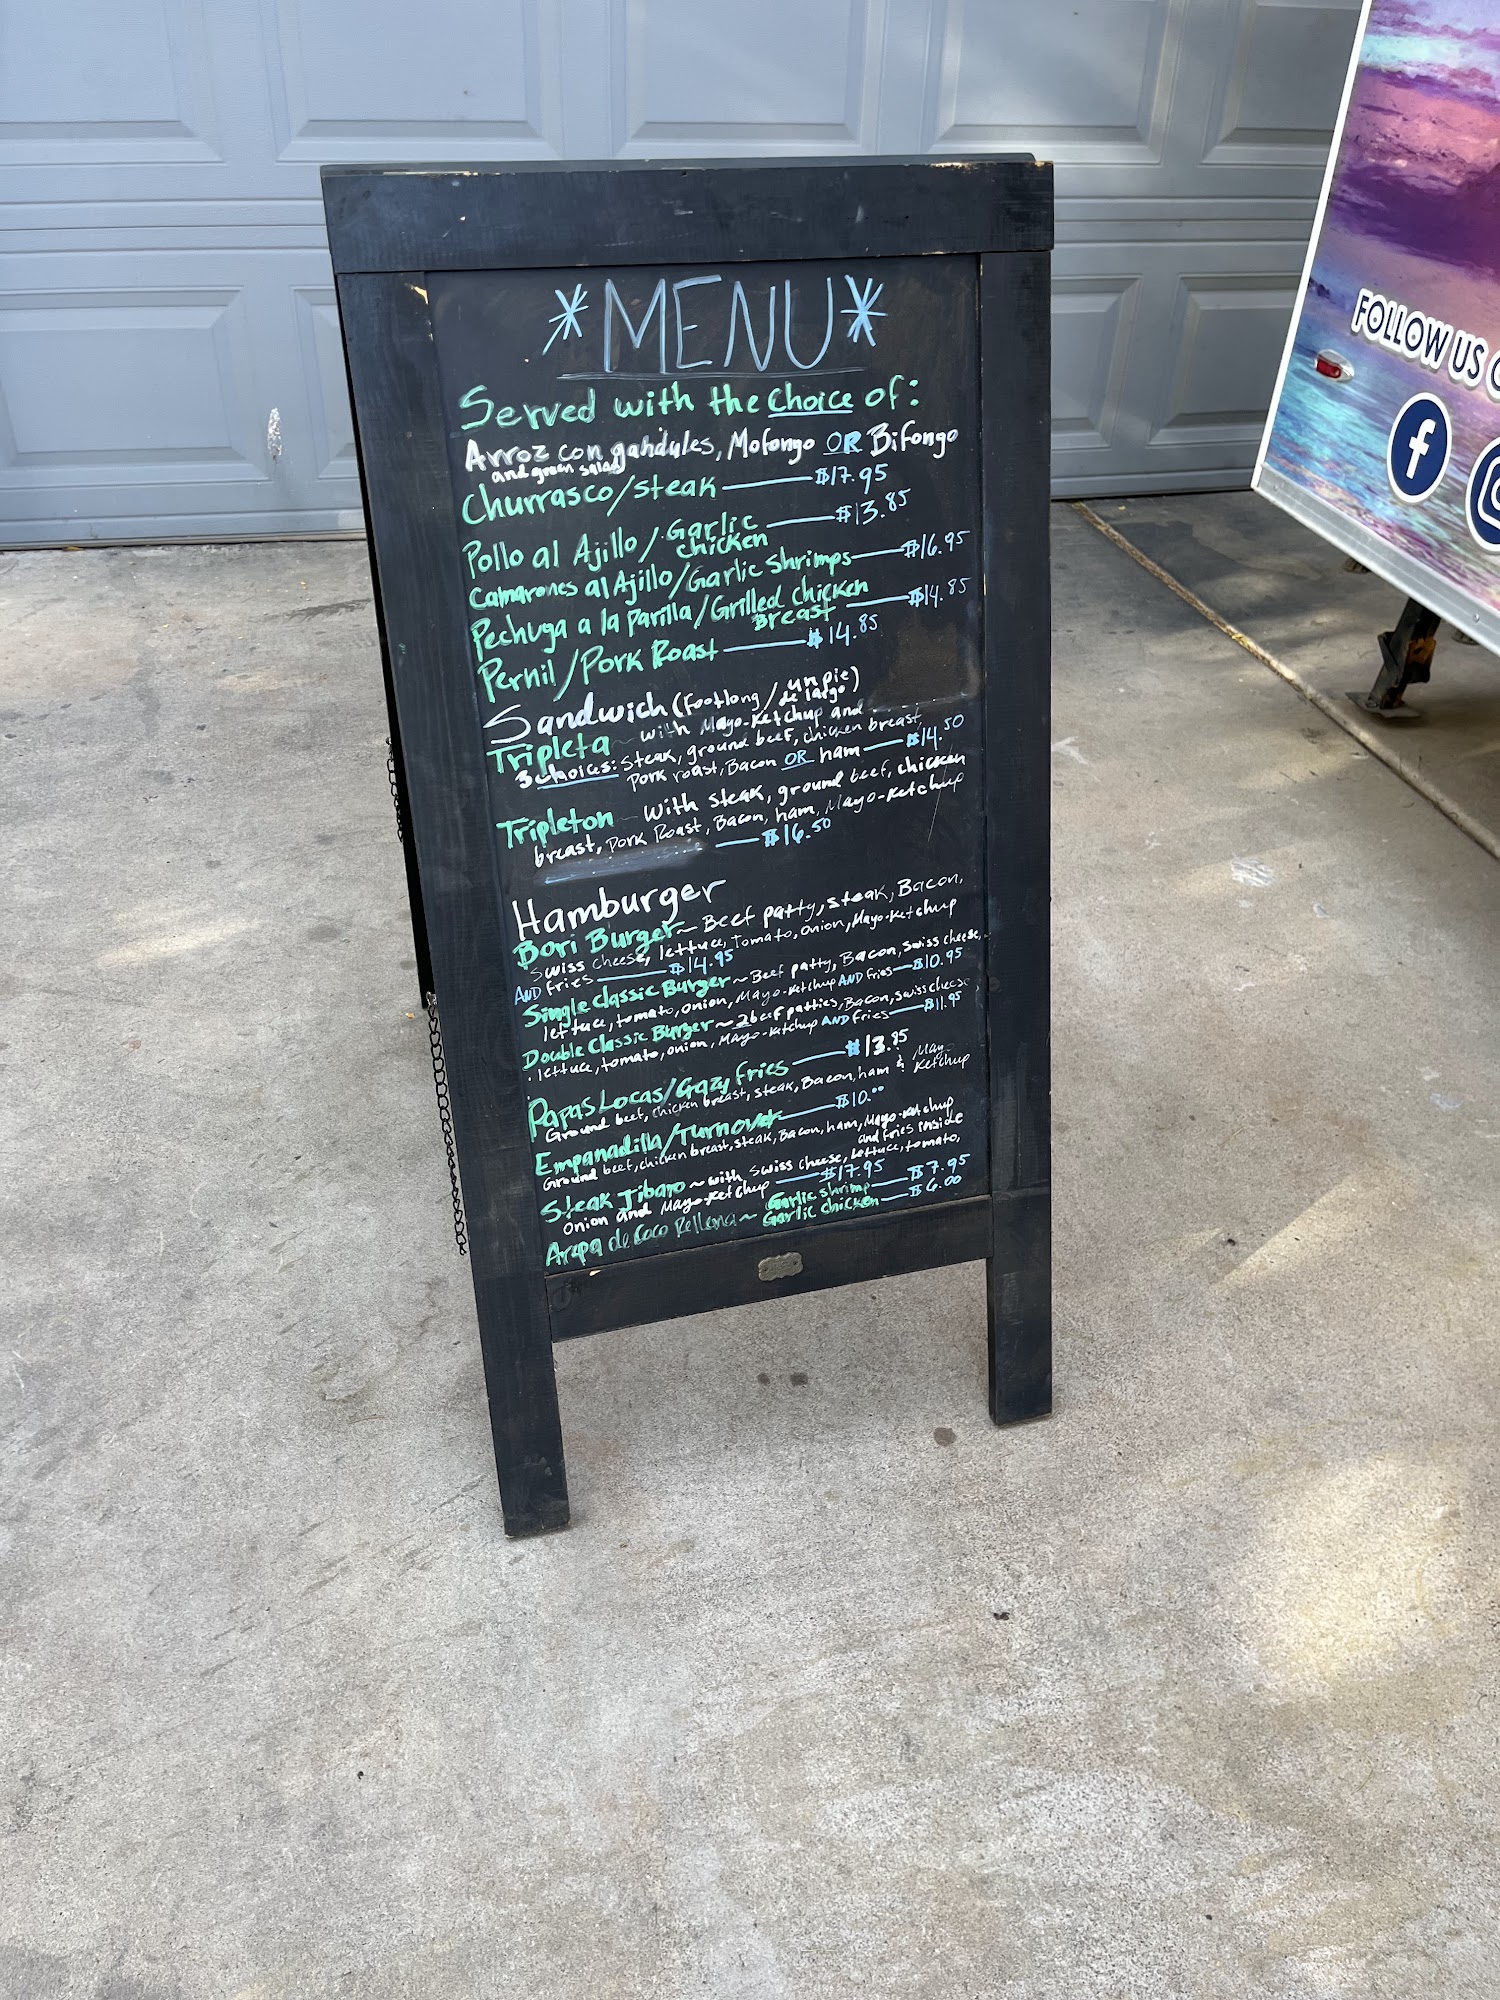 *MENU*
Served with the choice of:
Arroz con gandules, Mofongo OR Bifongo
and green salad
Churrasco/steak — $17.95
Pollo al Ajillo/Garlic chicken — $13.85
Camarones al Ajillo/Garlic shrimps — $16.95
Pechuga a la Parilla/Grilled chicken Breast — $14.85
Pernil/Pork Roast — $14.85
Sandwich (Footlong/un pie de largo)
Tripleta ~ with Mayo-Ketchup and
3 choices: steak, ground beef, chicken breast,
Pork roast, Bacon OR ham — $14.50
Tripleton ~ with steak, ground beef, chicken
breast, Pork Roast, Bacon, ham, Mayo-Ketchup
— $16.50
Hamburger
Bori Burger ~ Beef patty, steak, Bacon,
swiss cheese, lettuce, Tomato, onion, Mayo-Ketchup
AND fries — $14.95
Single Classic Burger ~ Beef patty, Bacon, swiss cheese,
lettuce, tomato, onion, Mayo-Ketchup AND fries — $10.95
Double Classic Burger ~ 2 beef patties, Bacon, swiss cheese,
lettuce, tomato, onion, Mayo-Ketchup AND fries — $11.95
Papas Locas/Crazy fries — $13.85
Ground beef, chicken breast, steak, Bacon, ham & Mayo Ketchup
Empanadilla/Turnover — $10.00
Ground beef, chicken breast, steak, Bacon, ham, Mayo-Ketchup
and fries inside
Steak Jibaro ~ with swiss cheese, lettuce, tomato,
Onion and Mayo-Ketchup — $17.95
Arepa de Coco Rellena ~ Garlic shrimp — $7.95
Garlic chicken — $6.00
FOLLOW US
f